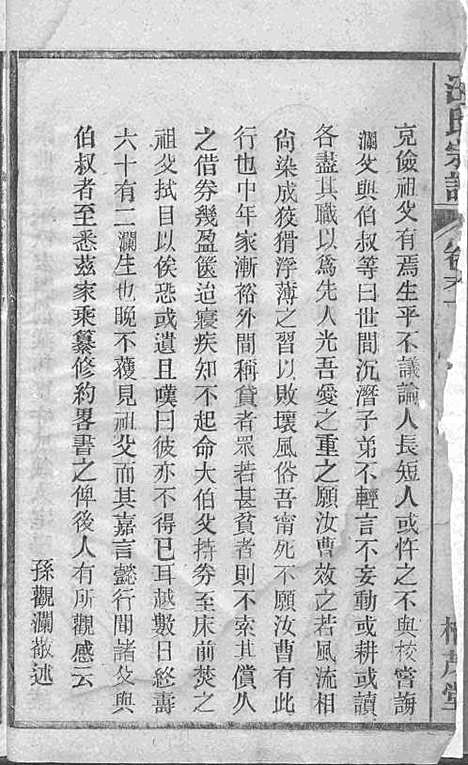 汪氏宗譜
卷六
克儉祖父有焉生平不議論人長短人或忤之不與校嘗謝
瀾父與伯叔等曰世間沉潛子弟不輕言不妄動或耕或讀
各盡其職以為先人光吾愛之重之願汝曹效之若風流相
尙染成狡猾浮薄之習以敗壞風俗吾甯死不願汝曹有此
行也中年家漸裕外間稱貸者眾若甚貧者則不索其償久
之借劵幾盈篋迨寢疾知不起命大伯父持劵至床前焚之
祖父拭目以俟恐或遺且嘆曰彼亦不得已耳越數日終壽
六十有二瀾生也晚不獲見祖父而其嘉言懿行聞諸父與
伯叔者至悉茲家乘纂修約畧書之俾後人有所觀感云
孫觀瀾敬述
堂